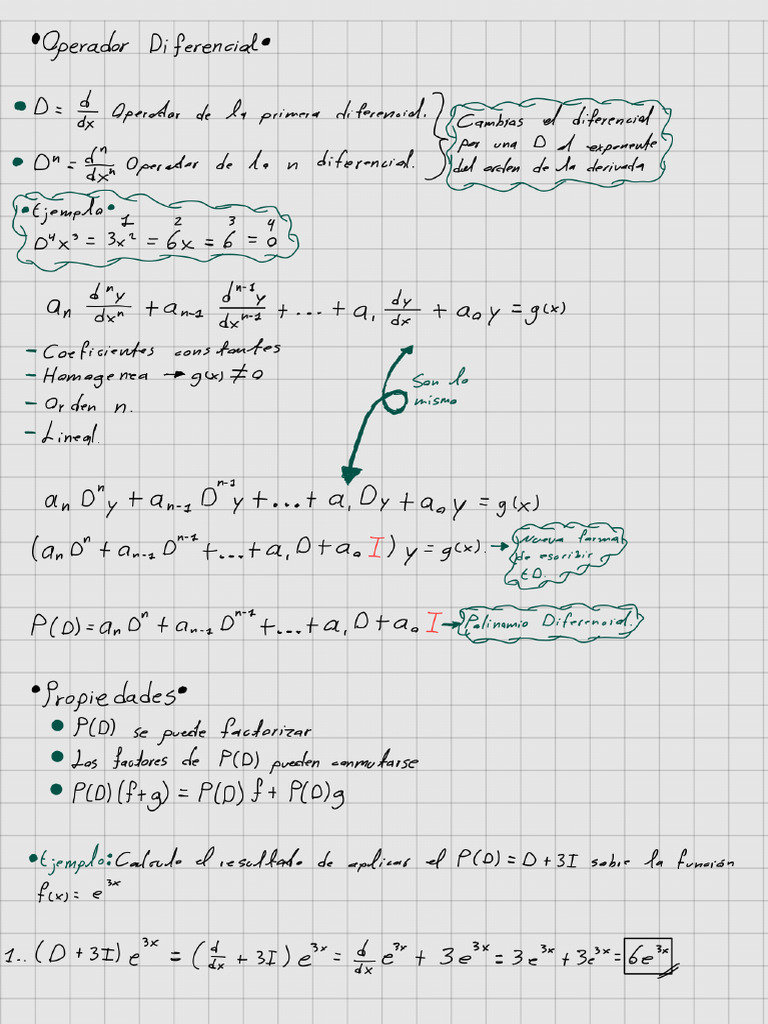 •Operador Diferencial•
• D = d/dx Operador de la primera diferencial.
• Dⁿ = dⁿ/dxⁿ Operador de la n diferencial.
Cambias el diferencial
por una D el exponente
del orden de la derivada
•Ejemplo•
1 2 3 4
D⁴x³ = 3x² = 6x = 6 = 0
aₙ dⁿy/dxⁿ + aₙ₋₁ dⁿ⁻¹y/dxⁿ⁻¹ + ... + a₁ dy/dx + a₀y = g(x)
- Coeficientes constantes
- Homogenea → g(x) ≠ 0
- Orden n.
- Lineal.
Son lo
mismo
aₙDⁿy + aₙ₋₁Dⁿ⁻¹y + ... + a₁Dy + a₀y = g(x)
(aₙDⁿ + aₙ₋₁Dⁿ⁻¹ + ... + a₁D + a₀I) y = g(x). →
Nueva forma
de escribir
ED.
P(D) = aₙDⁿ + aₙ₋₁Dⁿ⁻¹ + ... + a₁D + a₀I → Polinomio Diferencial.
•Propiedades•
• P(D) se puede factorizar
• Los factores de P(D) pueden conmutarse
• P(D)(f+g) = P(D)f + P(D)g
•Ejemplo: Calcula el resultado de aplicar el P(D) = D + 3I sobre la función
f(x) = e³ˣ
1.. (D + 3I) e³ˣ = (d/dx + 3I) e³ˣ = d/dx e³ˣ + 3e³ˣ = 3e³ˣ + 3e³ˣ = 6e³ˣ